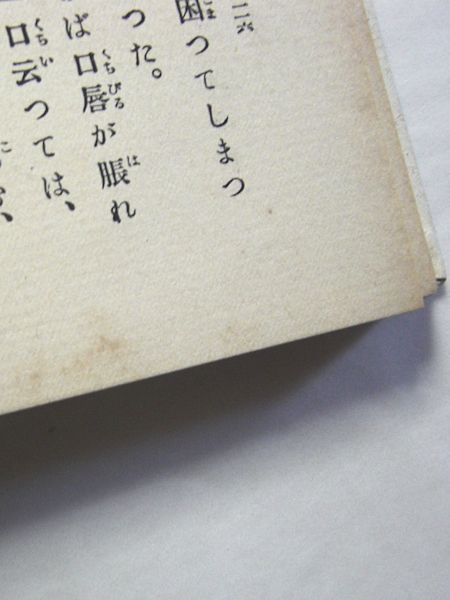 二六
困つてしまつ
つた。
ば口唇が脹れ
口云つては、